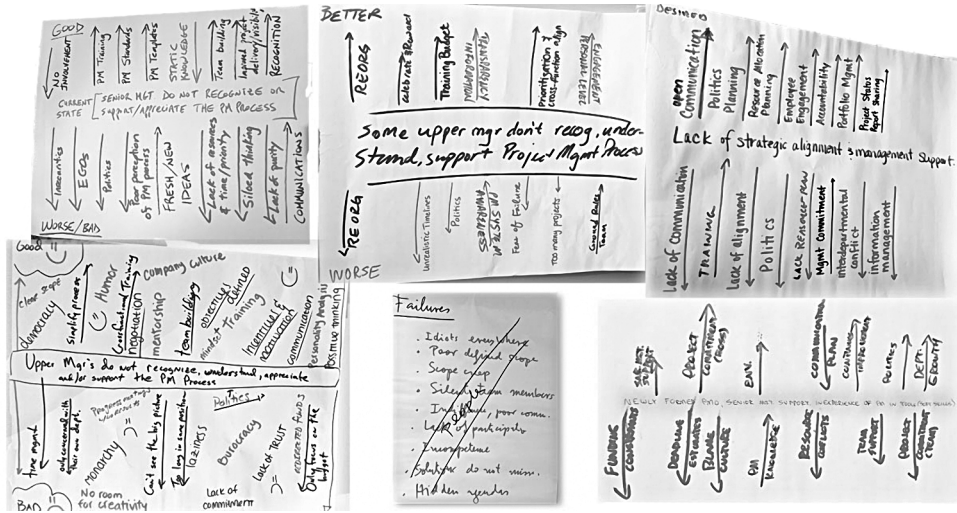 GOOD
NO INVOLVEMENT
PM Training
PM Standards
PM Templates
STATIC KNOWLEDGE
Team building
Improved project delivery/visibility
RECOGNITION
CURRENT STATE
SENIOR MGT DO NOT RECOGNIZE OR
SUPPORT/APPRECIATE THE PM PROCESS
Insecurities
EGOs
Politics
Poor perception of PM powers
FRESH/NEW IDEAS
Lack of resources & time priority
Siloed Thinking
Lack of priority
COMMUNICATIONS
WORSE/BAD
BETTER
REORG
Celebrate & Reward
Training Budget
TRANSPARENCY INFORMATION
Prioritisation & cross-function align
ENGAGEMENT PERSONNEL LEVEL
Some upper mgr don't recog, under-
stand, support Project Mgmt Process
REORG
Unrealistic Timelines
Politics
PM SYSTEM AWARENESS
Fear of Failure
Too many projects
Ground Rules Team
WORSE
DESIRED
Open Communication
Politics Planning
Resource Allocation Planning
Employee Engagement
Accountability
Portfolio Mgmt
Project Status Report Sharing
Lack of strategic alignment & management support.
Lack of Communication
TRAINING
Lack of alignment
Politics
LACK RESOURCE PLAN
Mgmt Commitment
interdepartmental conflict
information management
Good
clear scope
democracy
simplify process
Humor
Crossfunctional Training
negotiation
mentorship
company culture
team building
objectives defined
mindset Training
Incentives & motivation
communication
Personality Analysis
Positive thinking
Upper Mgr's do not recognize, understand, appreciate
and/or support the PM Process
time mgmt
only concerned with their own dept.
Monarchy
Can't see the big picture
Too long in same position
laziness
Politics
Bureocracy
Lack of TRUST
Only focus on the budget
BAD
No room for creativity
Lack of commitment
Failures
. Idiots everywhere
. Poor defined scope
. Scope creep
. Silent team members
. poor comm.
. Lack of
. Incompetence
. Solutions do not
. Hidden agendas
PROJECT COMMITMENT (CROSS)
COMMUNICATION PLAN
CONTINUOUS IMPROVEMENT
POLICIES
DEPT. GROWTH
NEWLY FORMED PMO, SENIOR NOT SUPPORT, INEXPERIENCE OF PM IN
FUNDING CONSTRAINTS
DEADLINE ESTIMATES
BLAME CULTURE
PM Knowledge
RESOURCE CONFLICTS
TEAM SUPPORT
PROJECT CONDITIONS